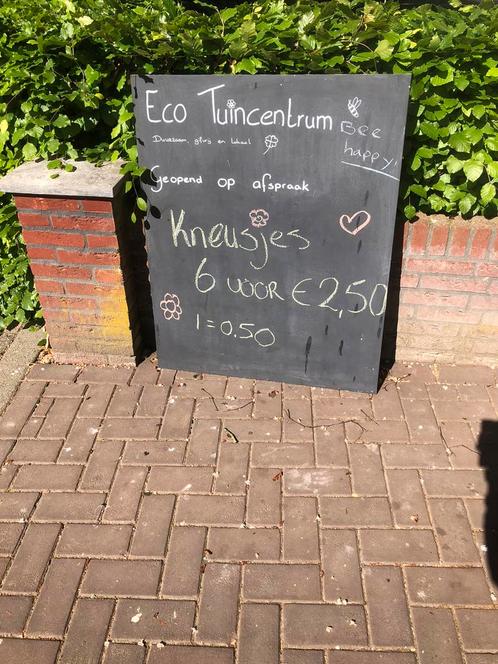 Eco Tuincentrum
Duurzaam, gifvrij en lokaal
Bee
happy!
Geopend op afspraak
Kneusjes
6 voor €2,50
1=0,50